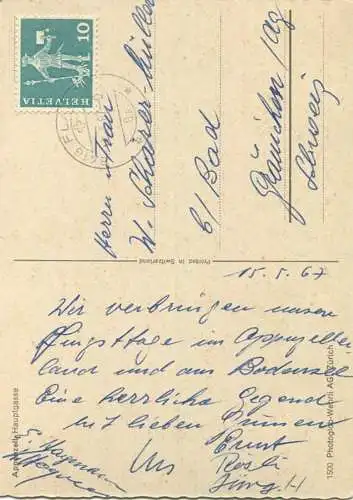 HELVETIA
10
Herrn und Frau
W. Schärer-Müller
b/Bad
Gränichen/Ag
Schweiz
Printed in Switzerland
15. 5. 67
Wir verbringen unsere
Pfingsttage im Appenzeller
land und am Bodensee
Eine herrliche Gegend
mit lieben Grüssen
Ernst
Rösli
Jürg. H
Urs
Appenzell Hauptgasse
1500 Photoglob-Wehrli AG Zürich